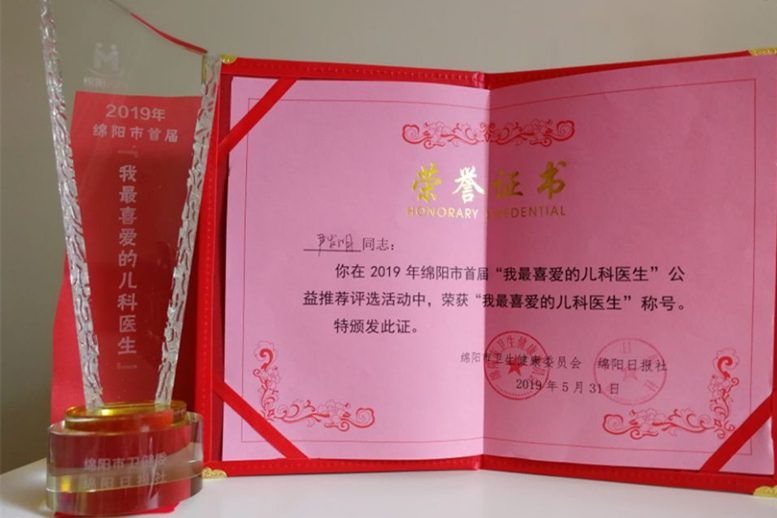 2019年
绵阳市首届
“我最喜爱的儿科医生”
绵阳市卫健委
绵阳日报社
荣誉证书
HONORARY CREDENTIAL
同志：
你在 2019 年绵阳市首届“我最喜爱的儿科医生”公
益推荐评选活动中，荣获“我最喜爱的儿科医生”称号。
特颁发此证。
绵阳市卫生健康委员会 绵阳日报社
2019 年 5 月 31 日